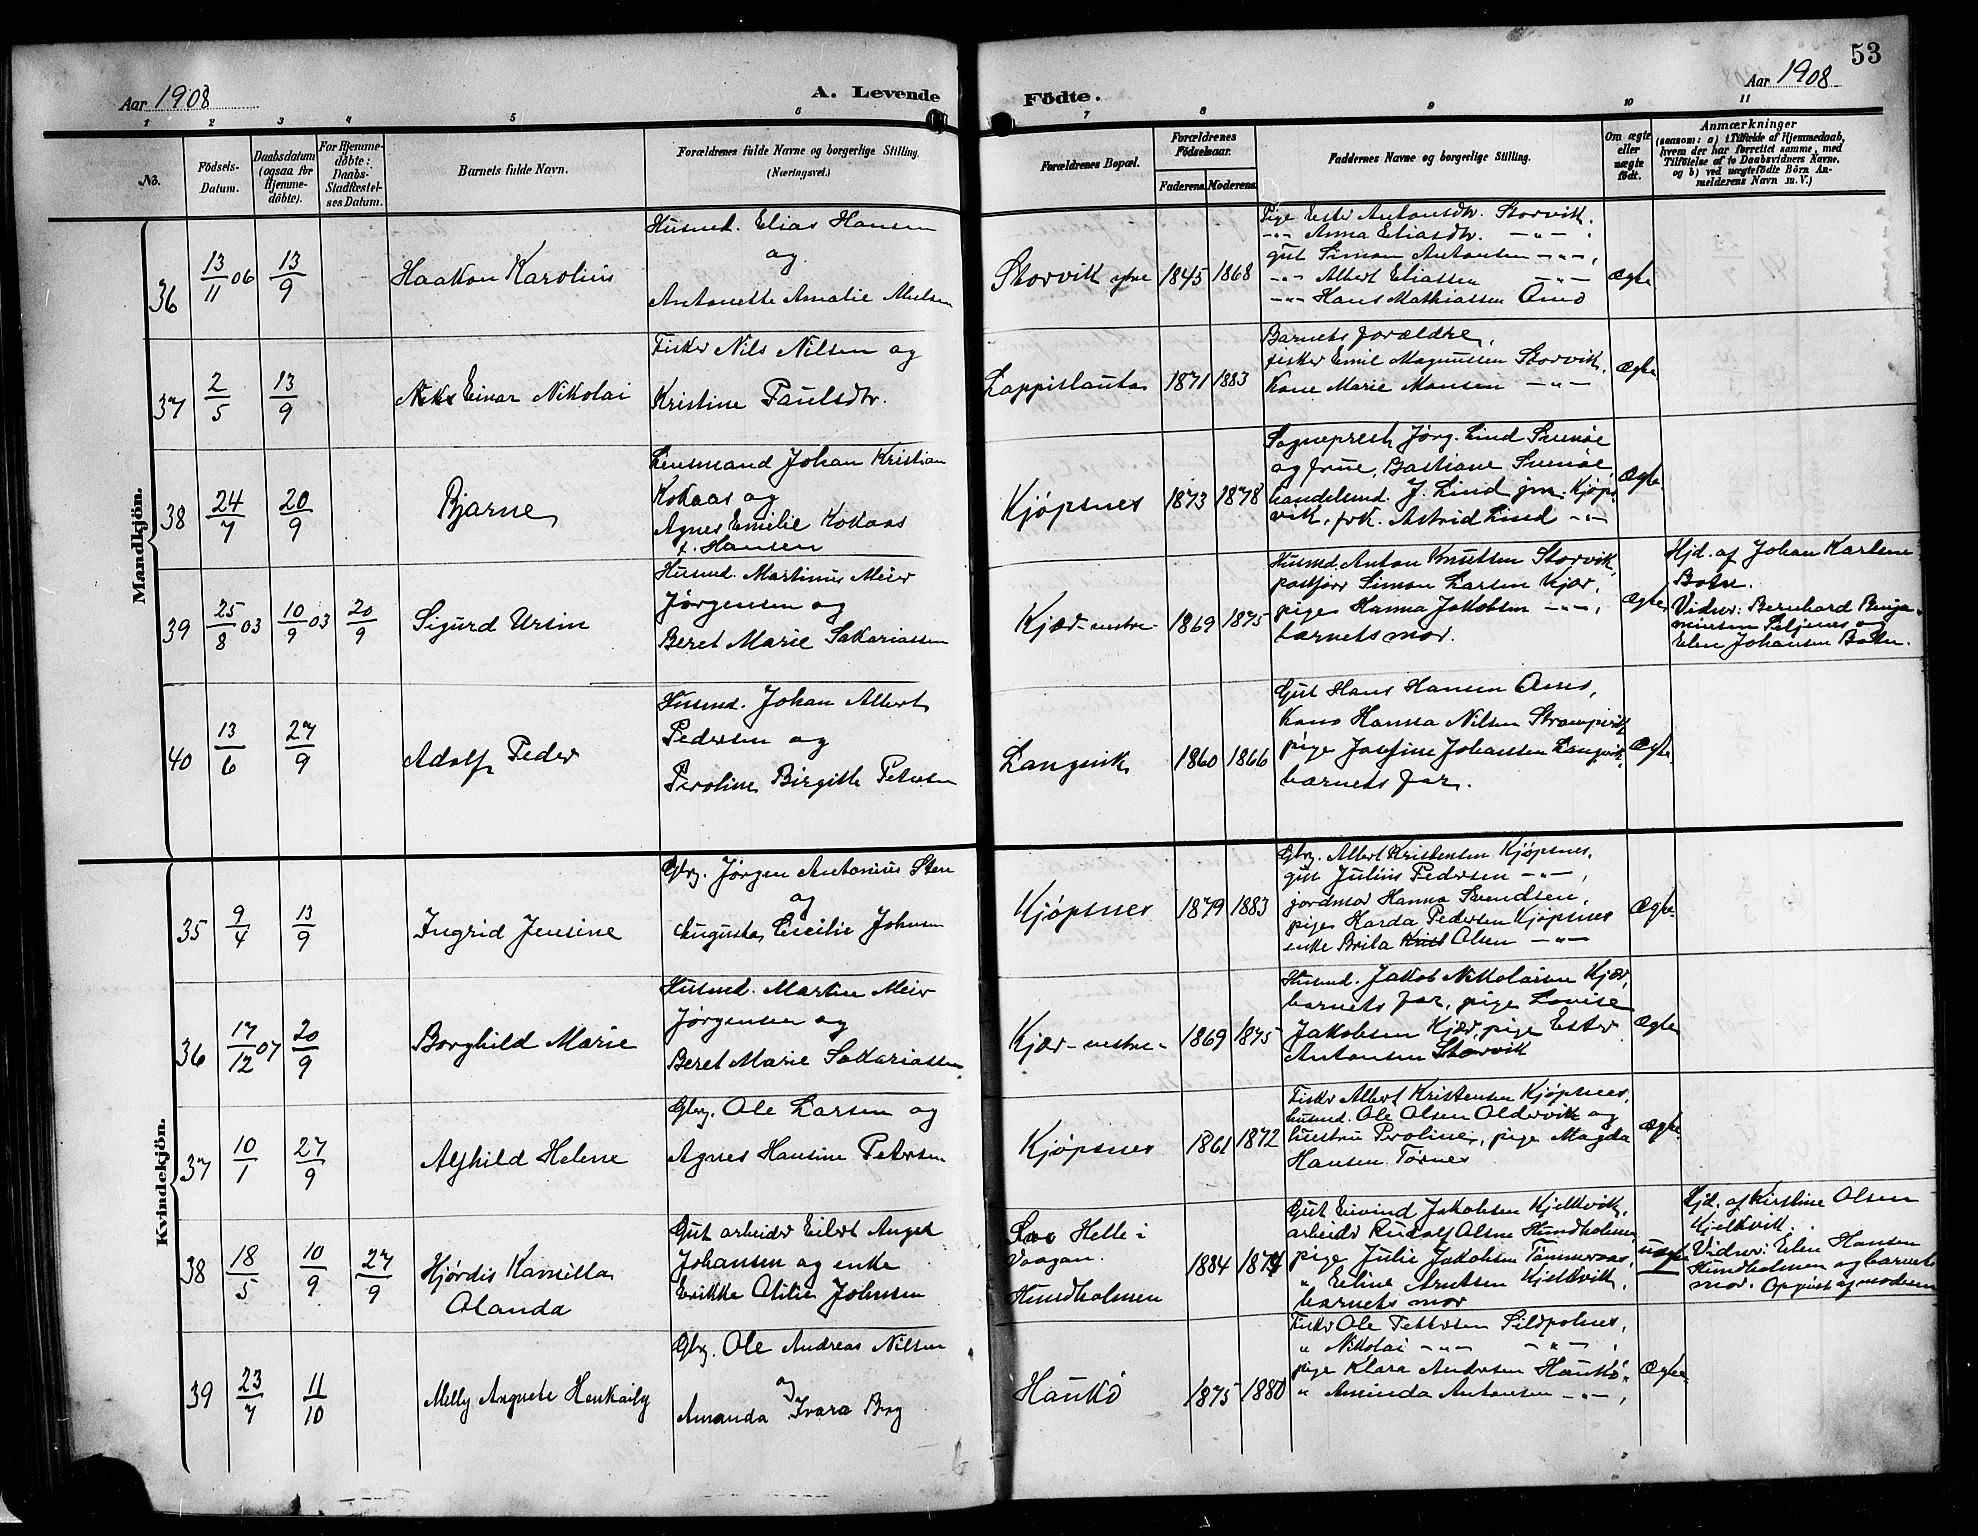 53
Aar 1908
A. Levende Födte.
Aar 1908
1 2 3 4 5 6 7 8 9 10 11
No.
Födsels-Datum.
Daabsdatum (ogsaa for Hjemme-döbte).
For Hjemme-döbte: Daabs-Stadfæstel-ses Datum.
Barnets fulde Navn.
Forældrenes fulde Navne og borgerlige Stilling. (Næringsvei.)
Forældrenes Bopæl.
Forældrenes Födselsaar.
Faderens. Moderens.
Faddernes Navne og borgerlige Stilling.
Om ægte eller uægte födt.
Anmærkninger
(saasom: a) i Tilfælde af Hjemmedaab, hvem der har forrettet samme, med Tilföielse af to Daabsvidners Navne, og b) ved uægtefödte Börn An-melderens Navn m. V.)
Mandkjön.
36 13/11 06 13/9 Haakon Karolius
Husmd. Elias Hansen
og
Antonette Amalie Nielsen
Storvik ytre 1845 1868
Pige Ester Antonsdtr. Storvik.
-"- Anna Eliasdtr. -"-
gut Simon Antonsen -"-,
-"- Albert Eliassen -"-
-"- Hans Mathiassen
Ægte
37 2/5 13/9 Einar Nikolai
Fisker Nils Nilsen og
Kristine Paulsdtr.
1871 1883
Barnets forældre,
fisker Emil Magnussen Storvik,
Kone Marie Monsen -"-
Ægte
38 24/7 20/9 Bjarne
Lensmand Johan Kristian
Kokaas og
Agnes Emilie Kokaas
f. Hansen
Kjøpsnes 1873 1878
Sogneprest Jørg. Lind
og frue, Bastiane
handelsmd. J. Lind jun. Kjøps
vik, frk. Astrid Lind -"-
Ægte
39 25/8 03 10/9 03 20/9 Sigurd Ursin
Husmd. Martinus Meier
Jørgensen og
Beret Marie Sakariassen
Kjær-vestre- 1869 1875
Husmd. Anton Knutsen Storvik,
postfører Simon Larsen Kjær,
pige Hanna Jakobsen -"-,
barnets mor.
Ægte
Hjd. af Johan Karlsen
Botn.
Vidner: Bernhard Benja-
minsen Seljenes og
Elen Johansen Botn.
40 13/6 27/9 Adolf Peder
Husmd. Johan Albert
Pedersen og
Peroline Birgitte Petersen
Langvik 1860 1866
Gut Hans Hansen
Kone Hanna Nilsen
pige Josefine Johanssen Langvik
barnets far.
Ægte
Kvindekjön.
35 9/4 13/9 Ingrid Jensine
Gbrg. Jørgen Antonius Sten
og
Augusta Cecilie Johnsen
Kjøpsnes 1879 1883
Gbrg. Albert Kristensen Kjøpsnes,
gut Julius Pedersen -"-,
jordmor Hanna Svendsen,
pige Harda Pedersen Kjøpsnes
enke Brita Olsen -"-
Ægte
36 17/12 07 20/9 Borghild Marie
Husmd. Martin Meier
Jørgensen og
Beret Marie Sakariassen
Kjær-vestre- 1869 1875
Husmd. Jakob Nikolaisen Kjær,
barnets far, pige Lovise
Jakobsen Kjær, pige Ester
Antonsen Storvik
Ægte
37 10/1 27/9 Alfhild Helene
Gbrg. Ole Larsen og
Agnes Hansine Petersen
Kjøpsnes 1861 1872
Fisker Albert Kristensen Kjøpsnes,
husmd. Ole Olsen Oldervik og
hustru Peroline, pige Magda
Hansen Tørnes
Ægte
38 18/5 10/9 27/9 Hjørdis Kamilla
Olanda
Gut arbeider Eilert Angel
Johansen og enke
Erikke Otilie Johnsen
Helle i
Vaagan.
Hundholmen
1884
Gut Eivind Jakobsen Kjelkvik,
arbeider Rudolf Olsen Hundholmen
pige Julie Jakobsen Tømmeraas,
" Eline Arntsen Kjelkvik,
barnets mor
uægte
Hjd. af Kirstine Olsen
Kjelkvik.
Vidner: Elen Hansen
Hundholmen og barnets
mor. Opgivet af moderen
39 23/7 11/10 Milly Angnete Haukaily
Gbrg. Ole Andreas Nilsen
og
Amanda Ivara Berg
Haukø 1875 1880
Fisker Ole Pettersen Sildpolnes,
" Nikolai -"- -"-,
pige Klara Andersen Haukø,
" Aminda Antonsen -"-,
Ægte